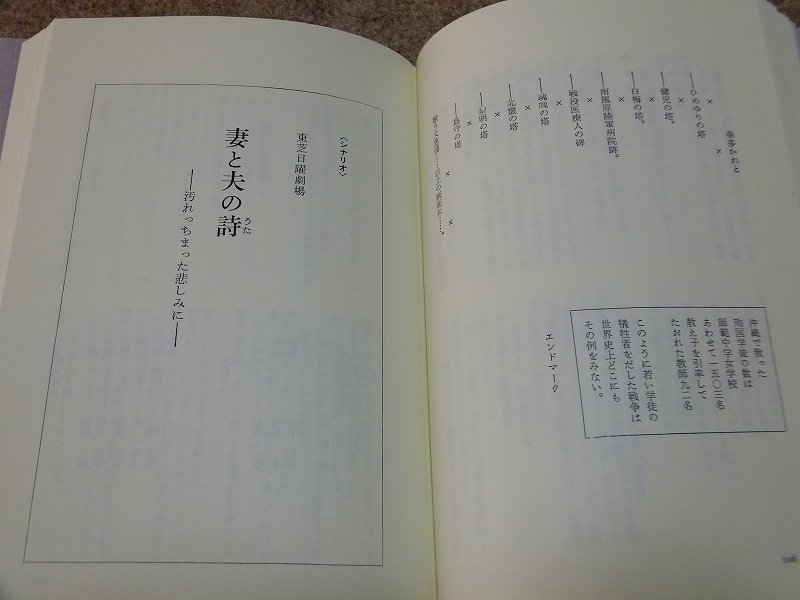 幸多かれと
×
――ひめゆりの塔
×
――健児の塔。
×
――白梅の塔。
×
――南風原陸軍病院跡。
×
――戦没医療人の碑
×
――魂魄の塔
×
――北霊の塔
×
――黎明の塔
×
――島守の塔
×
沖縄で散った
殉国学徒の数は
師範中学女学校
あわせて一五〇三名
教え子を引率して
たおれた教師九二名
このように若い学徒の
犠牲者をだした戦争は
世界史上どこにも
その例をみない。
エンドマーク
〈シナリオ〉
東芝日曜劇場
妻と夫の詩
うた
――汚れっちまった悲しみに――